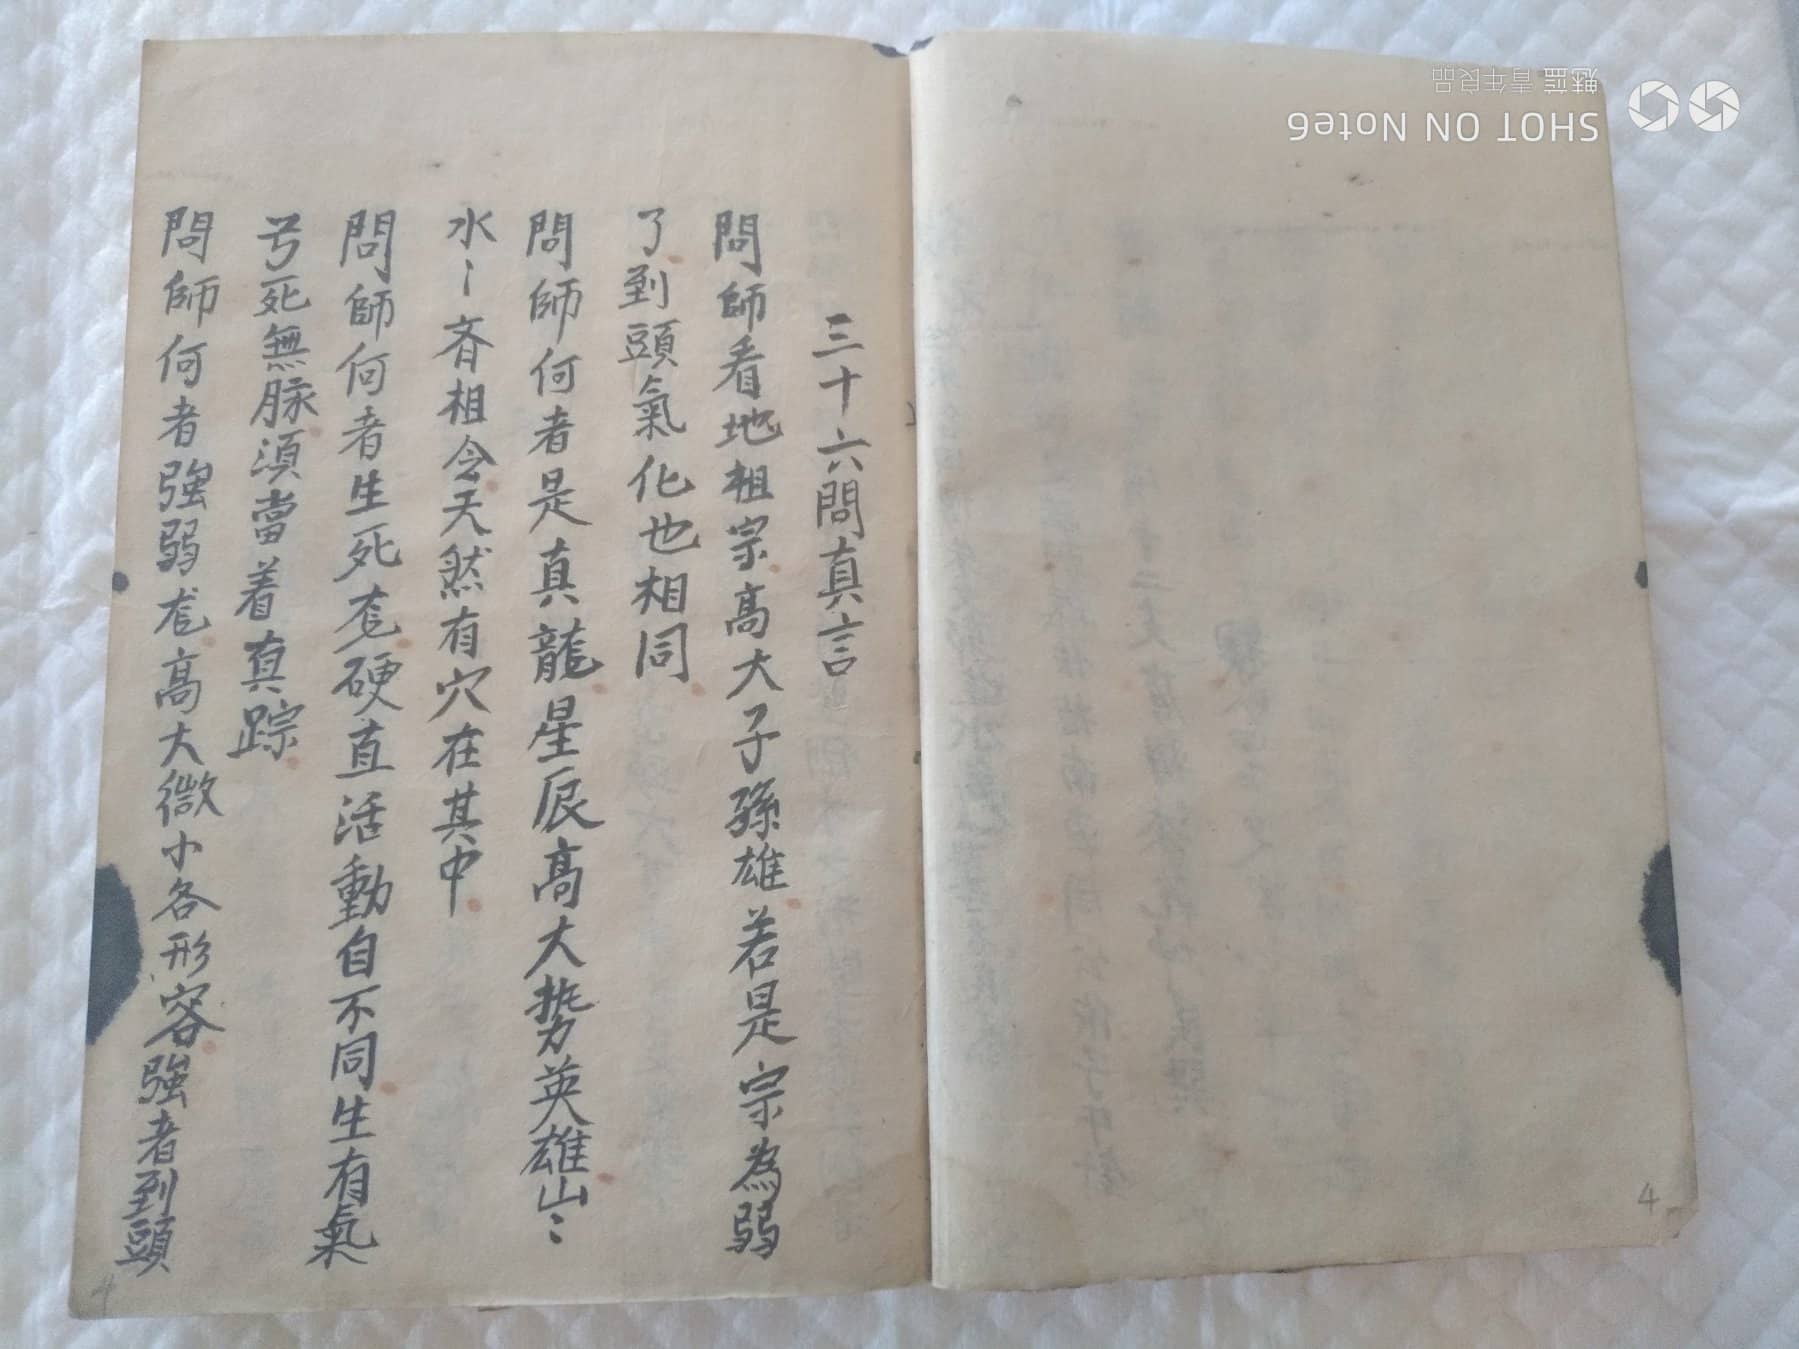 三十六問真言
問師看地祖宗高大子孫雄若是宗為弱
了到頭氣化也相同
問師何者是真龍星辰高大势英雄山〻
水〻齐相令天然有穴在其中
問師何者生死龙硬直活動自不同生有氣
号死無脉須當着真踪
問師何者強弱龙高大微小各形容強者到頭
4
4
SHOT ON Note6
魅蓝 青年良品